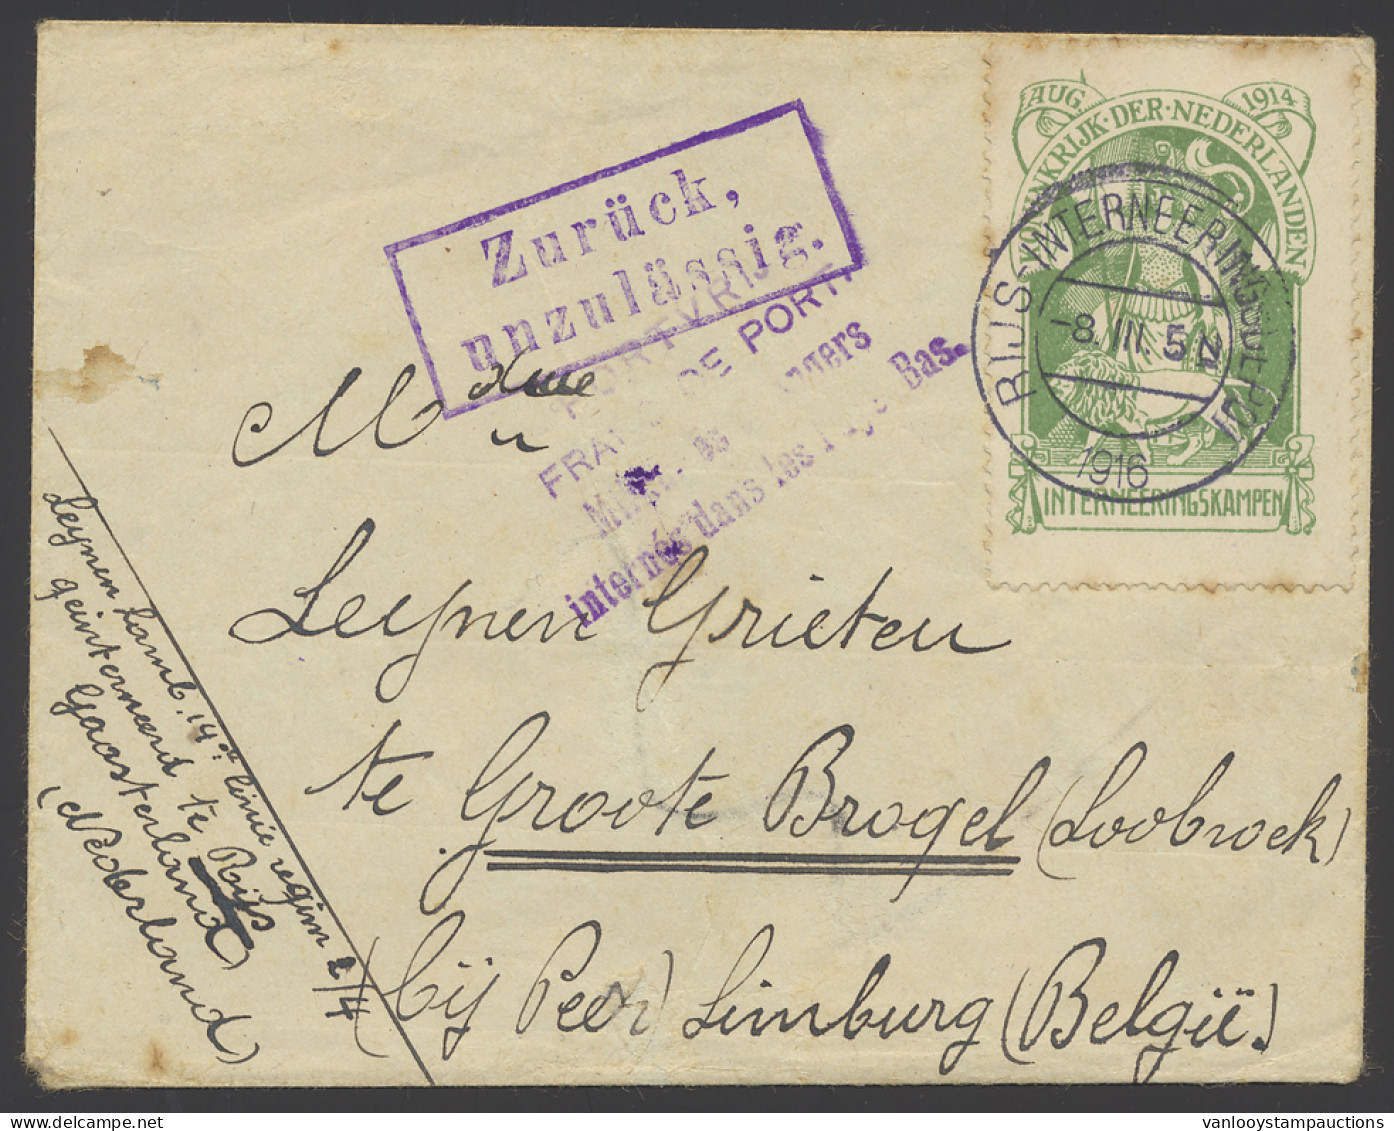 AUG. 1914
KONINKRIJK·DER·NEDERLANDEN
INTERNEERINGSKAMPEN
RIJS-INTERNEERINGDEPOT
-8.III. 5N
1916
Zurück,
unzulässig.
PORTVRIJ
FRANC DE PORT
Militaires
internés dans les Pays Bas.
Mdme
Leynen Grieten
te Groote Brogel (Loobroek)
(bij Peer) Limburg (België.)
Leynen Lamb. 14de linie regim 2/4
geinterneerd te Rijs
Gaasterland
(Nederland)
vanlooystampauctions